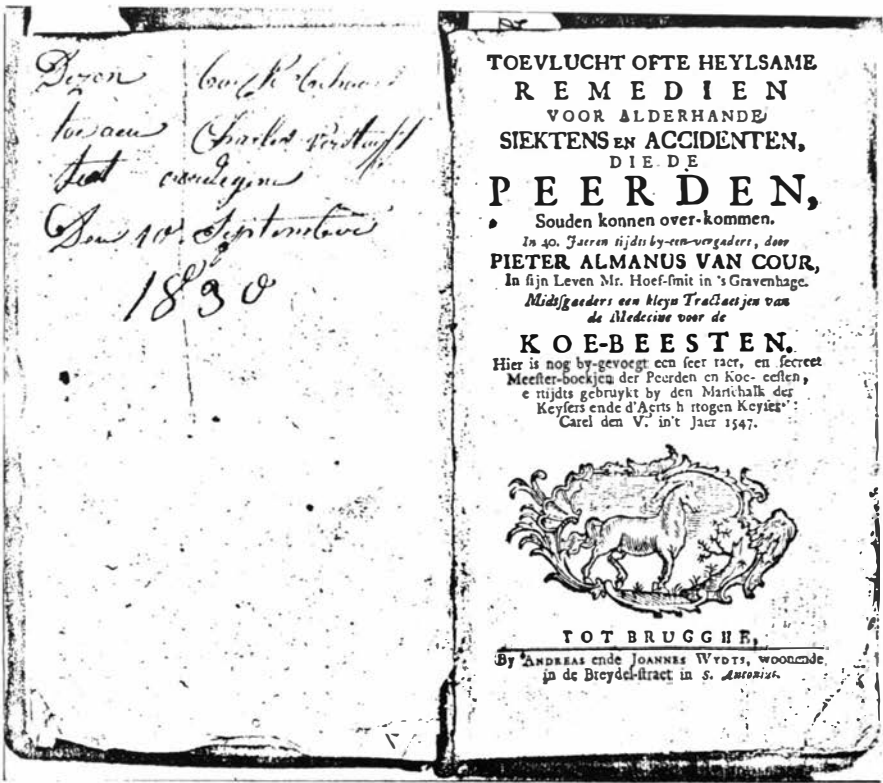 Dezen boek behoord
toe aen Charles
teat
Den 10 September
1830
TOEVLUCHT OFTE HEYLSAME
REMEDIEN
VOOR ALDERHANDE
SIEKTENS EN ACCIDENTEN,
DIE DE
PEERDEN,
Souden konnen over-kommen.
In 40. Jaeren tijdts by-een-vergadert, door
PIETER ALMANUS VAN COUR,
In sijn Leven Mr. Hoef-smit in 's Gravenhage.
Midtsgaeders een kleyn Tractaetjen van
de Medecine voor de
KOE-BEESTEN.
Hier is nog by-gevoegt een seer raer, en secreet
Meester-boekjen der Peerden en Koe- eesten,
e rtijdts gebruykt by den Marichalk der
Keysers ende d'Aerts h rtogen Keyser
Carel den V. in't Jaer 1547.
TOT BRUGGHE,
By ANDREAS ende JOANNES WYDTS, woonende
in de Breydel-straet in S. Antonius.